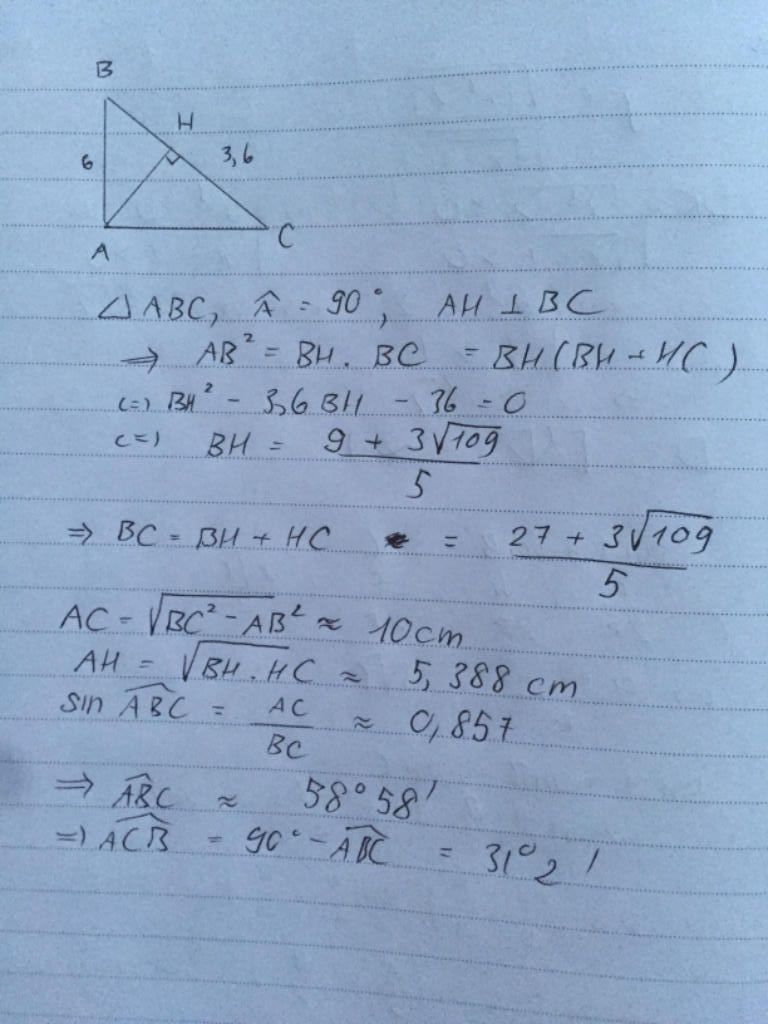 B
H
6
3,6
A
C
△ABC, Â = 90°, AH ⊥ BC
⇒ AB² = BH. BC = BH(BH + HC)
(=) BH² - 3,6 BH - 36 = 0
(=) BH = (9 + 3√109)/5
⇒ BC = BH + HC = (27 + 3√109)/5
AC = √(BC² - AB²) ≈ 10cm
AH = √(BH . HC) ≈ 5,388 cm
sin \widehat{ABC} = AC/BC ≈ 0,857
⇒ \widehat{ABC} ≈ 58°58'
=) \widehat{ACB} = 90° - \widehat{ABC} = 31°2'